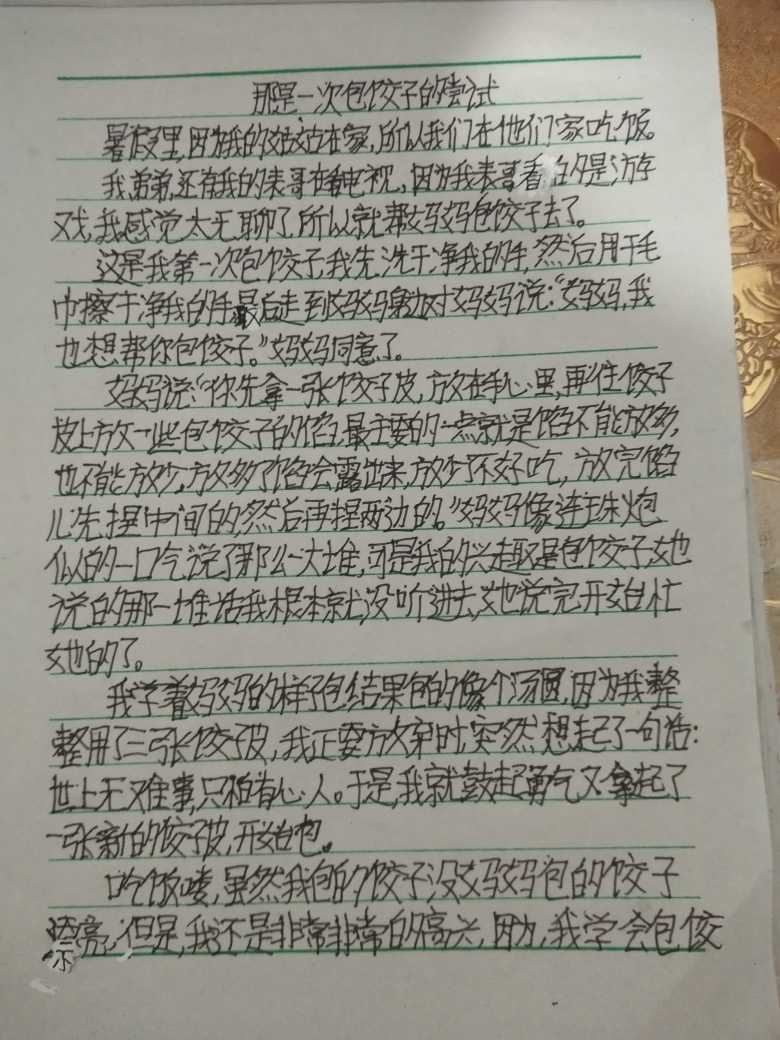 那是一次包饺子的尝试
暑假里,因为我的姑姑在家,所以我们在他们家吃饭。
我弟弟,还有我的表哥在看电视,因为我表哥看的是游
戏,我感觉太无聊了,所以就帮妈妈包饺子去了。
这是我第一次包饺子,我先洗干净我的手,然后用干毛
巾擦干净我的手最后走到妈妈身边对妈妈说:“妈妈,我
也想帮你包饺子。”妈妈同意了。
妈妈说:“你先拿一张饺子皮,放在手心里,再往饺子
皮上放一些包饺子的馅,最主要的一点就是馅不能放多,
也不能放少,放多了馅会露出来,放少了不好吃,放完馅
儿先捏中间的,然后再捏两边的。”妈妈像连珠炮
似的一口气说了那么一大堆,可是我的兴趣是包饺子,她
说的那一堆话我根本就没听进去,她说完开始忙
她的了。
我学着妈妈的样子包,结果包的像个汤圆,因为我整
整用了三张饺子皮,我正要放弃时,突然想起了一句话:
世上无难事,只怕有心人。于是,我就鼓起勇气又拿起了
一张新的饺子皮,开始包。
吃饭喽,虽然我包的饺子没妈妈包的饺子
漂亮,但是,我还是非常非常的高兴,因为,我学会包饺